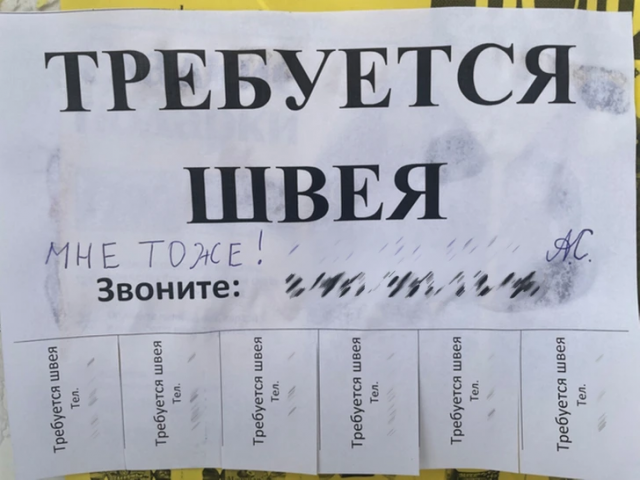 ТРЕБУЕТСЯ
ШВЕЯ
МНЕ ТОЖЕ! А.С.
Звоните:
Требуется швея
Тел.
Требуется швея
Тел.
Требуется швея
Тел.
Требуется швея
Тел.
Требуется швея
Тел.
Требуется швея
Тел.